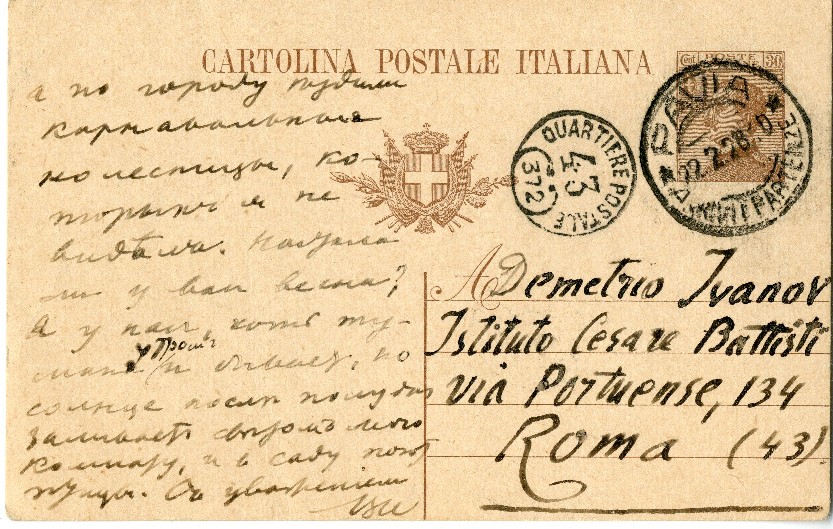 CARTOLINA POSTALE ITALIANA
Cmi POSTE 30
PAVIA
22.2.28
ARRIVI PARTENZE
QUARTIERE POSTALE
43
(372)
а по городу ходили
карнавальныя
колесницы, ко-
торыхъ я не
видѣла. Наступила
ли у вас весна?
А у нас, хотя ту-
манъ утромъ и бывает, но
солнце послѣ полудня
заливаетъ свѣтомъ мою
комнату, и в саду поют
птицы. Съ уважением
A Demetrio Ivanov
Istituto Cesare Battisti
Via Portuense, 134
Roma (43)